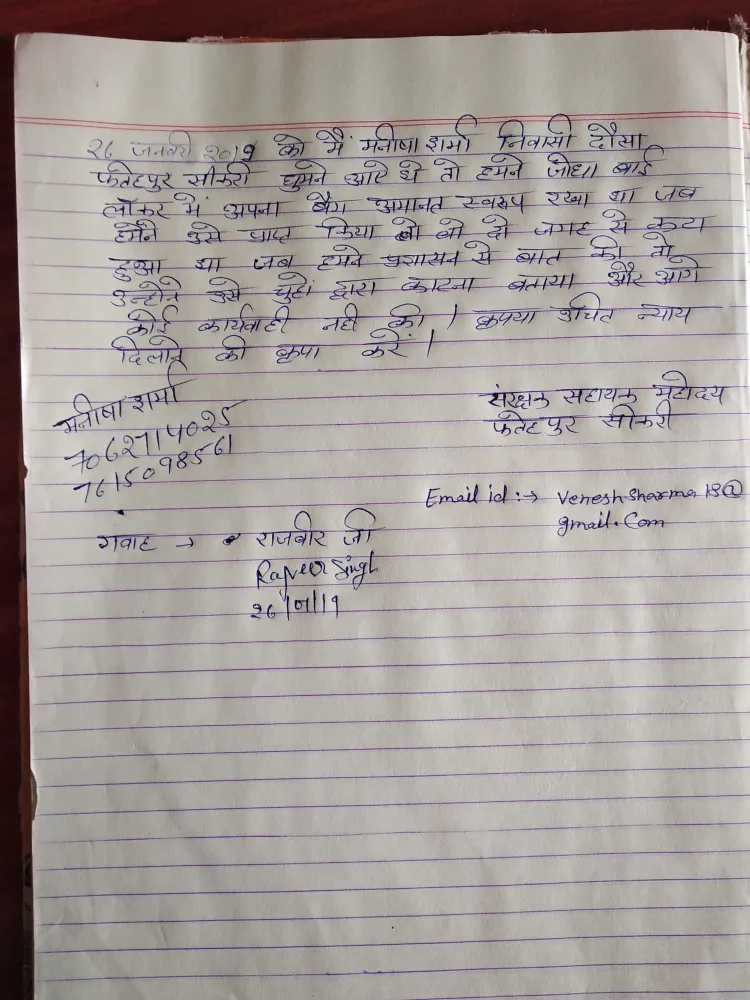 26 जनवरी 2019 को मैं मनीषा शर्मा निवासी दौसा
फतेहपुर सीकरी घुमने आऐ थे तो हमने जोधा बाई
लॉकर में अपना बैग अमानत स्वरूप रखा था जब
हमने उसे प्राप्त किया तो वो दो जगह से कटा
हुआ था जब हमने प्रशासन से बात की तो
उन्होने उसे चुहों द्वारा काटना बताया और आगे
कोई कार्यवाही नही की । कृपया उचित न्याय
दिलाने की कृपा करें ।
मनीषा शर्मा
7062714025
7615098561
संरक्षक सहायक महोदय
फतेहपुर सीकरी
Email id :→ Veneshsharma18@
gmail.com
गवाह → राजवीर जी
Rajveer Singh
26/01/19